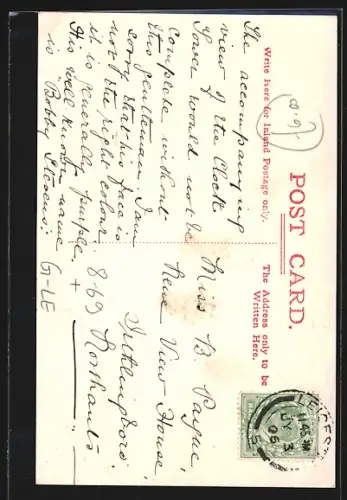 POST CARD.
Write Here for Inland Postage only.
The Address only to be
Written Here.
The accompanying
view of the Clock
Tower would not be
complete without
this gentleman I am
sorry that his face is
not the right colour
it is generally purple,
His well known name
is Bobby
Miss B Payne,
New View House,
Irthlingboro'
Northants
869
G-LE
LEICESTER
JY 3
05